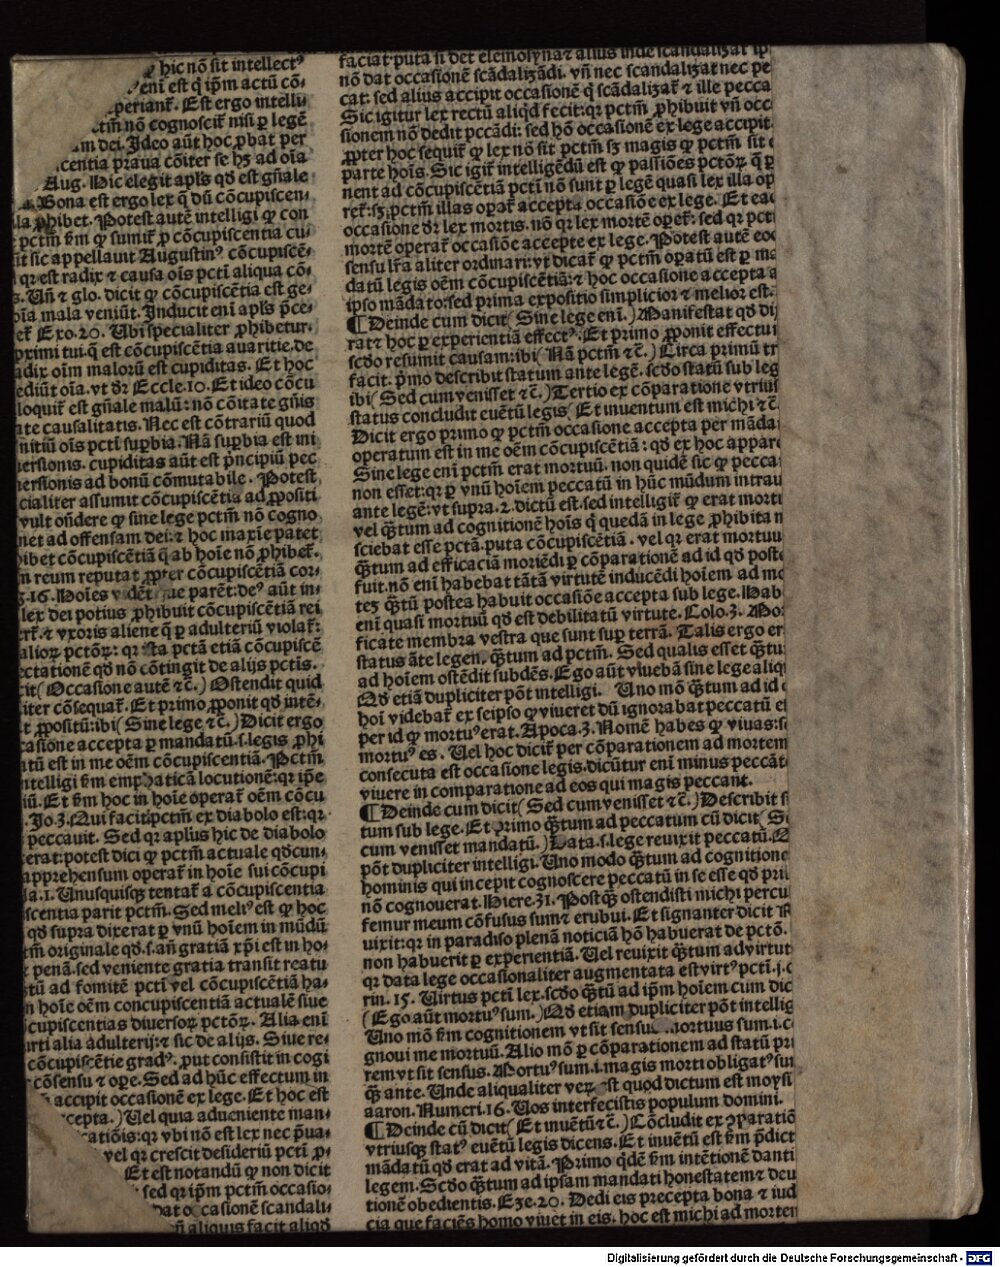 hic nō sit intellectꝰ
enī est q̄ ip̄m actū cō⸗
periant̄. Est ergo intelli
tm̄ nō cognoscit̄ nisi ꝑ legē
am dei. Ideo aūt hoc ꝓbat per
centia praua cōiter se hȝ ad oīa
Aug. Hic elegit apl̄s qd̄ est gn̄ale
Bona est ergo lex q̄ dū cōcupiscen⸗
la ꝓhibet. Potest autē intelligi ꝙ con
pctm̄ ẜm ꝙ sumit̄ ꝓ cōcupiscentia cu⸗
it sic appellauit Augustinꝰ cōcupiscē⸗
qꝛ est radix ⁊ causa oīs pcti aliqua cō⸗
s. Vn̄ ⁊ glo. dicit ꝙ cōcupiscētia est ge⸗
oīa mala veniūt. Inducit enī apl̄s p̄ce⸗
et̄ Exo.20. Vbi specialiter ꝓhibetur.
primi tui.q̄ est cōcupiscētia auaritie.de
adix oīm malorū est cupiditas. Et hoc
ediūt oīa. vt dr̄ Eccle.10. Et ideo cōcu
loquit̄ est gn̄ale malū: nō cōitate gn̄is
ate causalitatis. Nec est cōtrariū quod
nitiū oīs pcti suꝑbia. Nā suꝑbia est ini
iersionis. cupiditas aūt est p̄ncipiū pec
iersionis ad bonū cōmutabile. Potest
cialiter assumit cōcupiscētia ad ꝓpositi
vult on̄dere ꝙ sine lege pctm̄ nō cogno
net ad offensam dei: ⁊ hoc maxīe patet
ibet cōcupiscētiā q̄ ab hoīe nō ꝓhibet̄.
n reum reputat ꝓpter cōcupiscētiā cor⸗
g.16. Hoīes parēt:deꝰ aūt in⸗
lex dei potius ꝓhibuit cōcupiscētiā rei
ert̄. ⁊ vxoris aliene q̄ ꝑ adulteriū violat̄:
alioꝝ pctōꝝ: qꝛ ista pctā etiā cōcupiscē
ectationē qd̄ nō cōtingit de alijs pctis.
cit( Occasione autē ⁊ c̄.) Ostendit quid
iter cōsequat̄. Et primo ꝓponit qd̄ intē⸗
t ꝓpositū:ibi( Sine lege ⁊ c̄.) Dicit ergo
casione accepta ꝑ mandatū.s.legis ꝓhi
tū est in me oēm cōcupiscentiā. Pctm̄
ntelligi ẜm emphaticā locutionē:qꝛ ip̄e
iū. Et ẜm hoc in hoīe operat̄ oēm cōcu
.Jo.3. Qui facit pctm̄ ex diabolo est:qꝛ
peccauit. Sed qꝛ apl̄us hic de diabolo
erat:potest dici ꝙ pctm̄ actuale qd̄cun⸗
apprehensum operat̄ in hoīe sui cōcupi
ia.1. Vnusquisqꝫ tentat̄ a cōcupiscentia
scentia parit pctm̄. Sed meliꝰ est ꝙ hoc
qd̄ supra dixerat ꝑ vnū hoīem in mūdū
tm̄ originale qd̄.s.an̄ gratiā xp̄i est in ho⸗
⁊ penā.sed veniente gratia transit reatu
tū ad fomitē pcti vel cōcupiscētiā ha⸗
n hoīe oēm concupiscentiā actualē siue
cupiscentias diuersoꝝ pctōꝝ. Alia enī
urti alia adulterij: ⁊ sic de alijs. Siue re⸗
cōcupiscētie gradꝰ. put consistit in cogi
cōsensu ⁊ oꝑe. Sed ad hūc effectum in
accipit occasionē ex lege. Et hoc est
cepta.) Vel quia adueniente man⸗
catiōis:qꝛ vbi nō est lex nec p̄ua⸗
vel qꝛ crescit desideriū pcti ꝓ⸗
Et est notandū ꝙ non dicit
sed qꝛ ip̄m pctm̄ occasio⸗
dat occasionē scandali⸗
n̄ aliquis facit aliqd̄
faciat puta si det elemosynā ⁊ alius inde scandalizat̄ ip
nō dat occasionē scādalizādi. vn̄ nec scandalizat nec pe
cat: sed alius accipit occasionē q̄ scādalizat̄ ⁊ ille pecca
Sic igitur lex rectū aliqd̄ fecit:qꝛ pctm̄ ꝓhibuit vn̄ occ
sionem nō dedit pccādi: sed hō occasionē ex lege accipit.
ꝓpter hoc sequit̄ ꝙ lex nō sit pctm̄ sȝ magis ꝙ pctm̄ sit
parte hoīs. Sic igit̄ intelligēdū est ꝙ passiōes pctōꝝ q̄ ꝑ
nent ad cōcupiscētiā pcti nō sunt ꝑ legē quasi lex illa op
ret̄:sȝ pctm̄ illas oꝑat̄ accepta occasiōe ex lege. Et ea
occasione dr̄ lex mortis. nō qꝛ lex mortē oꝑet̄: sed qꝛ pct
mortē operat̄ occasiōe accepte ex lege. Potest autē eo
sensu lr̄a aliter ordinari:vt dicat̄ ꝙ pctm̄ oꝑatū est ꝑ ma
datū legis oēm cōcupiscētiā:⁊ hoc occasione accepta a
ipso mādato:sed prima expositio simplicior ⁊ melior est.
¶ Deinde cum dicit( Sine lege enī.) Manifestat qd̄ di
rat ⁊ hoc ꝑ experientiā effectꝰ. Et primo ꝓponit effectu
scd̄o resumit causam:ibi( Nā pctm̄ ⁊ c̄.) Circa primū tr
facit. p̄mo describit statum ante legē. scd̄o statū sub leg
ibi( Sed cum venisset ⁊ c̄.) Tertio ex cōparatione vtrius
status concludit euētū legis( Et inuentum est michi ⁊ c̄.
Dicit ergo primo ꝙ pctm̄ occasione accepta per māda
operatum est in me oēm cōcupiscētiā: qd̄ ex hoc appare
Sine lege enī pctm̄ erat mortuū. non quidē sic ꝙ pecca
non esset:qꝛ ꝑ vnū hoīem peccatū in hūc mūdum intrau
ante legē:vt supra.2.dictū est.sed intelligit̄ ꝙ erat mort
vel q̄tum ad cognitionē hoīs q̄ quedā in lege ꝓhibita n
sciebat esse pctā.puta cōcupiscētiā. vel qꝛ erat mortuu
q̄tum ad efficaciā moriēdi ꝑ cōparationē ad id qd̄ poste
fuit.nō enī habebat tātā virtutē inducēdi hoīem ad mo
teȝ q̄tū postea habuit occasiōe accepta sub lege. Hab
enī quasi mortuū qd̄ est debilitatū virtute. Colo.3. Mor
ficate membra vestra que sunt suꝑ terrā. Talis ergo er
status āte legem. q̄tum ad pctm̄. Sed qualis esset q̄tu
ad hoīem ostēdit subdēs. Ego aūt viuebā sine lege aliq
Qd̄ etiā dupliciter pōt intelligi. Vno mō q̄tum ad id
hoī videbat̄ ex seipso ꝙ viueret dū ignorabat peccatū e
per id ꝙ mortuꝰ erat. Apoca.3. Nomē habes ꝙ viuas:
mortuꝰ es. Vel hoc dicit̄ per cōparationem ad mortem
consecuta est occasione legis.dicūtur enī minus peccāt
viuere in comparatione ad eos qui magis peccant.
¶ Deinde cum dicit( Sed cum venisset ⁊ c̄.) Describit s
tum sub lege. Et primo q̄tum ad peccatum cū dicit( S
cum venisset mandatū.) Data.s.lege reuixit peccatū.
pōt dupliciter intelligi. Vno modo q̄tum ad cognitione
hominis qui incepit cognoscere peccatū in se esse qd̄ pri
nō cognouerat. Hiere.31. Postq̄ ostendisti michi percu
femur meum cōfusus sum ⁊ erubui. Et signanter dicit R
uixit:qꝛ in paradiso plenā noticiā hō habuerat de pctō.
non habuerit ꝑ experientiā. Vel reuixit q̄tum ad virtut
qꝛ data lege occasionaliter augmentata est virtꝰ pcti.j.
rin. 15. Virtus pcti lex.scd̄o q̄tū ad ip̄m hoīem cum dic
( Ego aūt mortuꝰ sum.) Qd̄ etiam dupliciter pōt intellig
Vno mō ẜm cognitionem vt sit sensus. mortuus sum.i.c
gnoui me mortuū. Alio mō ꝑ cōparationem ad statū pri
rem vt sit sensus. Mortuꝰ sum.i.magis morti obligatꝰ su
q̄ ante. Vnde aliqualiter veꝝ est quod dictum est moysi
aaron. Numeri.16. Vos interfecistis populum domini.
¶ Deinde cū dicit( Et inuētū ⁊ c̄.) Cōcludit ex ꝯparatiō
vtriusqꝫ statꝰ euētū legis dicens. Et inuētū est ẜm p̄dict
mādatū qd̄ erat ad vitā. Primo q̄dē ẜm intētionē danti
legem. Scd̄o q̄tum ad ipsam mandati honestatem ⁊ deu
tionē obedientis. Eze.20. Dedi eis precepta bona ⁊ iud
cia que faciēs homo viuet in eis. hoc est michi ad morten
Digitalisierung gefördert durch die Deutsche Forschungsgemeinschaft - DFG